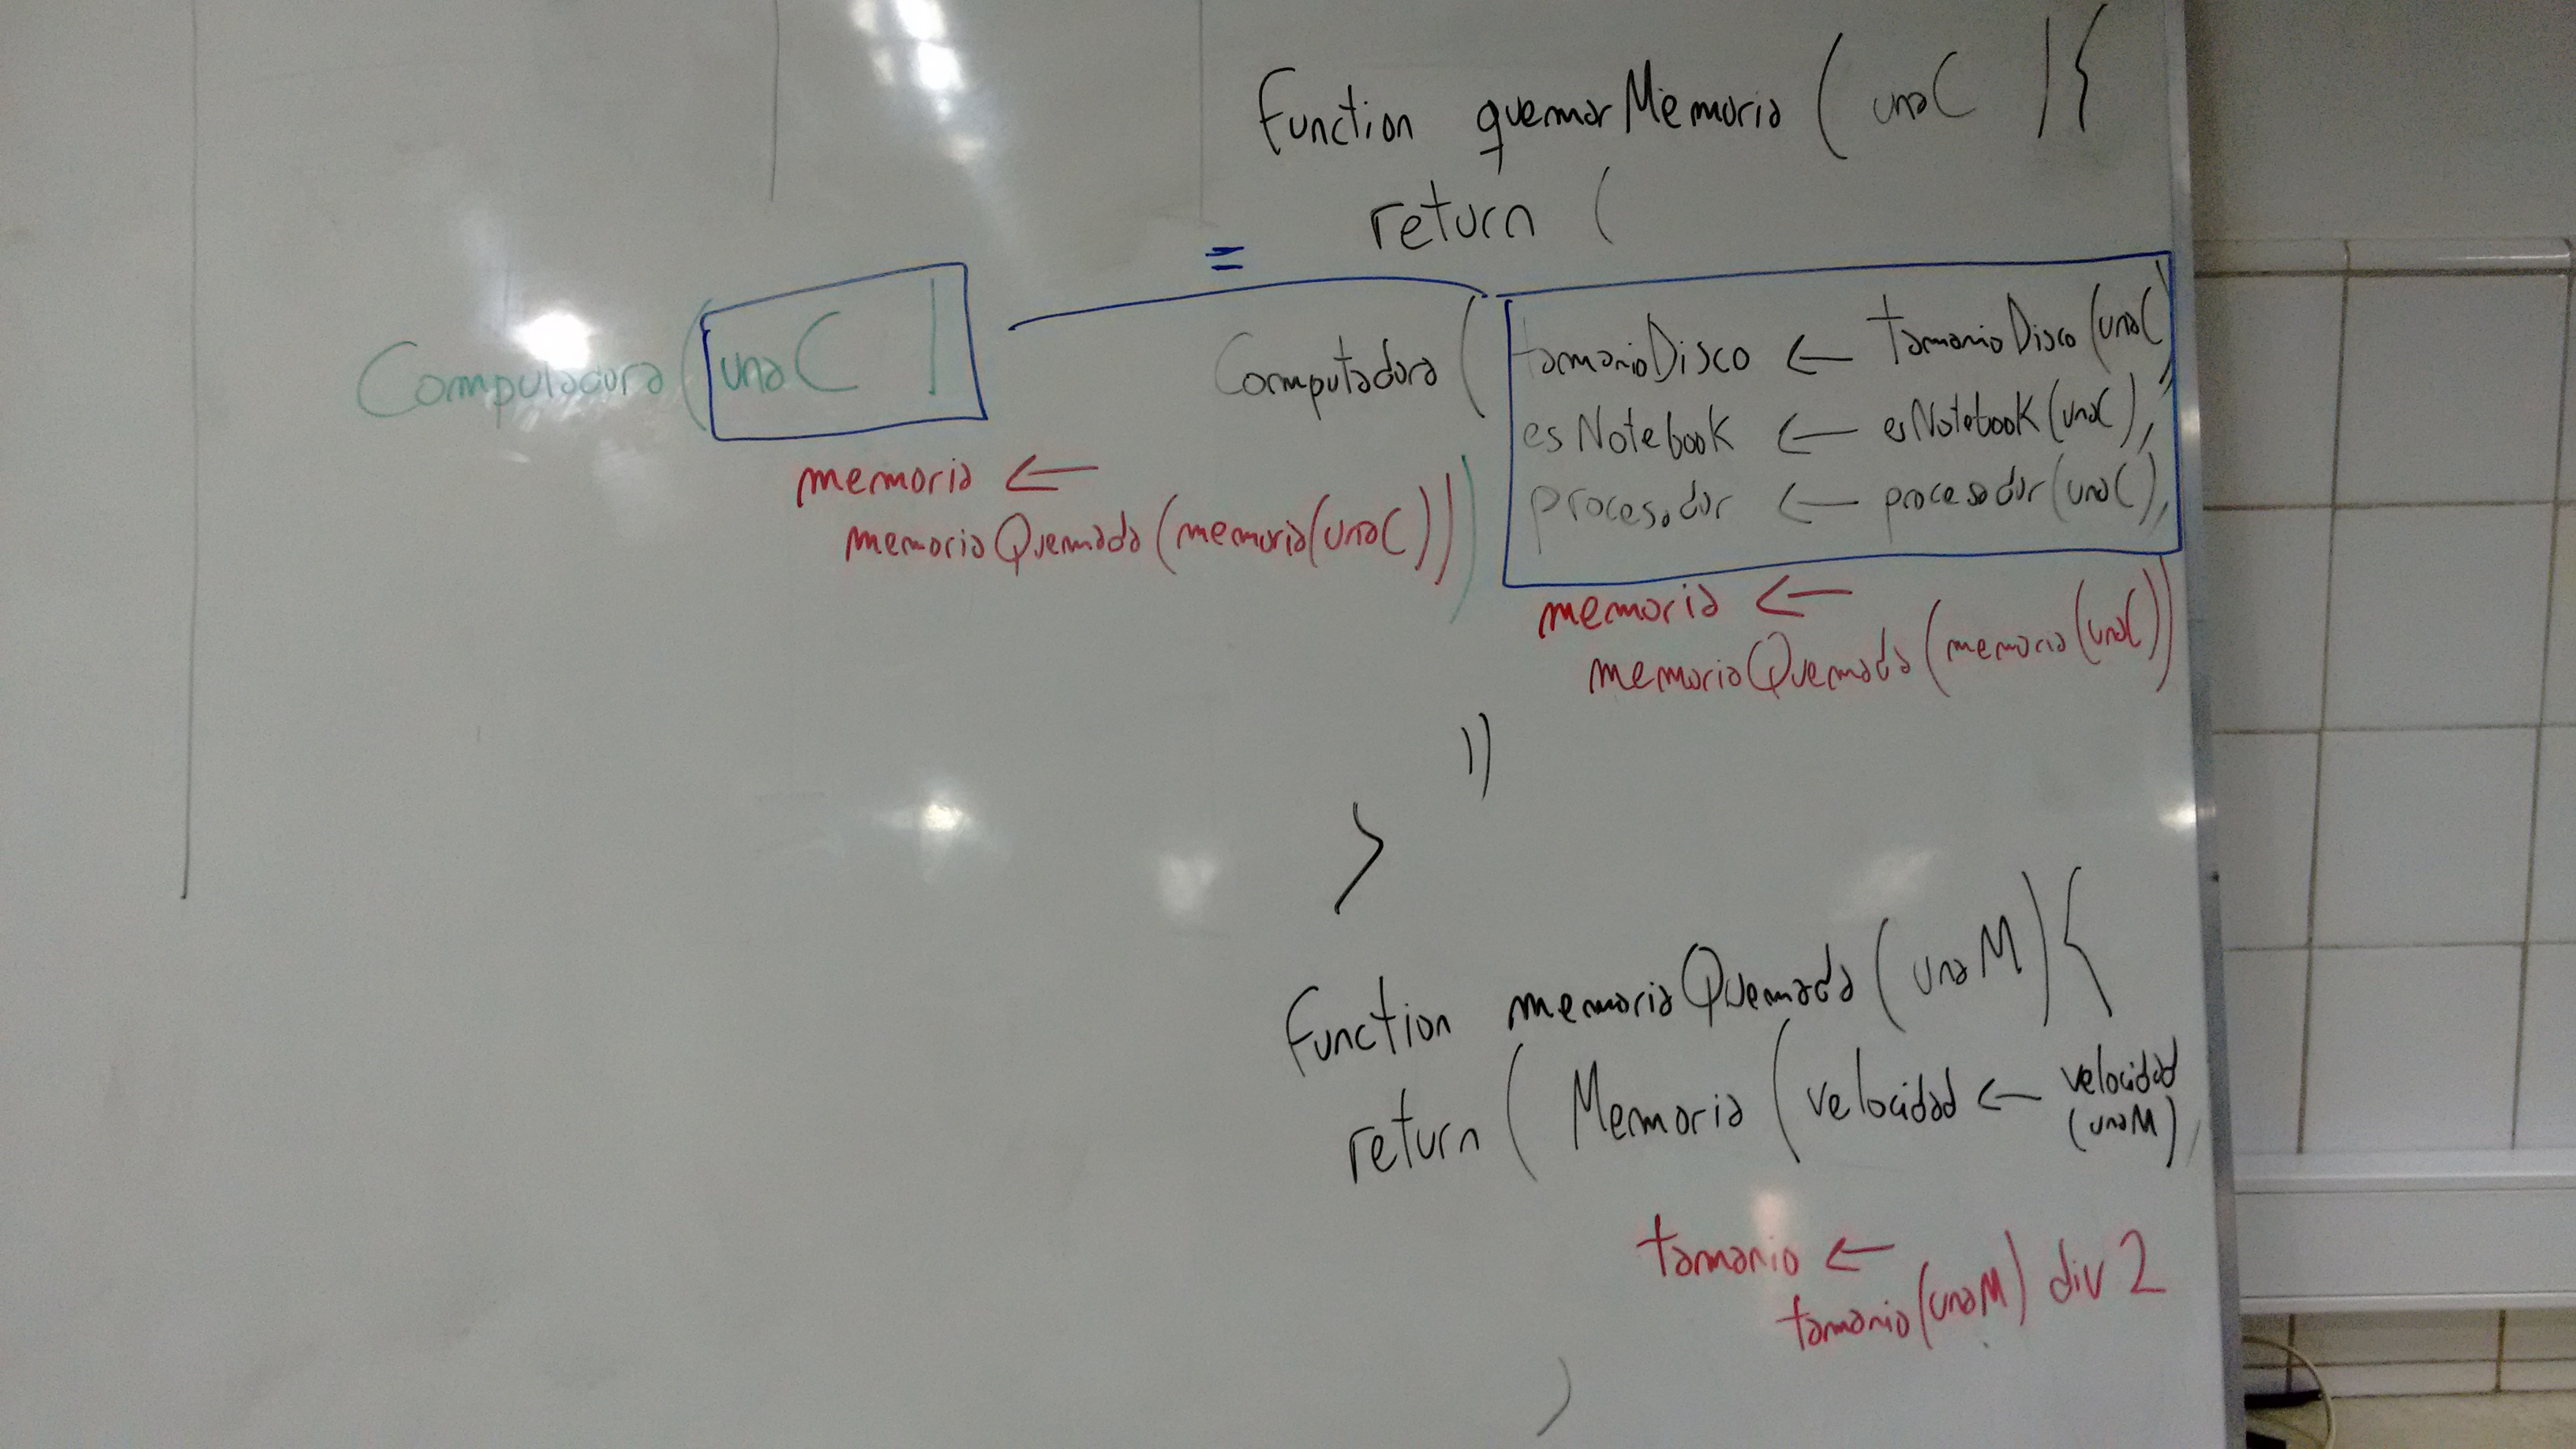 Function quemarMemoria ( unaC ) {
return (
=
Computadora ( unaC |
memoria ←
memoriaQuemada (memoria(unaC)) )
Computadora ( tamanioDisco ← tamanioDisco (unaC),
esNotebook ← esNotebook (unaC),
procesador ← procesador (unaC),
memoria ←
memoriaQuemada (memoria (unaC))
))
}
Function memoriaQuemada ( unaM ) {
return ( Memoria ( velocidad ← velocidad
(unaM),
tamanio ←
tamanio (unaM) div 2
)